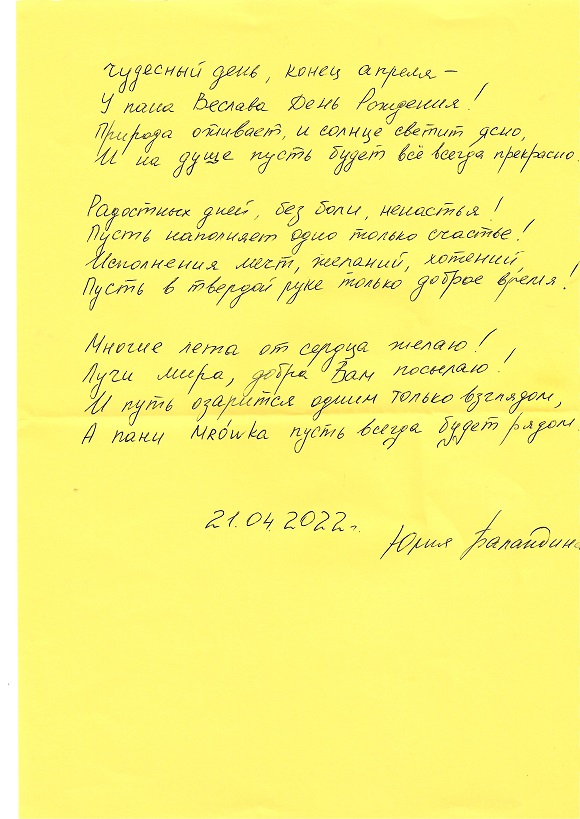 Чудесный день, конец апреля –
У пана Веслава День Рождения!
Природа оживает, и солнце светит ясно,
И на душе пусть будет всё всегда прекрасно.
Радостных дней, без боли, ненастья!
Пусть наполняет одно только счастье!
Исполнения мечт, желаний, хотений,
Пусть в твердой руке только доброе время!
Многие лета от сердца желаю!
Лучи мира, добра Вам посылаю!
И путь озарится одним только взглядом,
А пани Mrówka пусть всегда будет рядом.
21.04.2022г.
Юрия Баландина